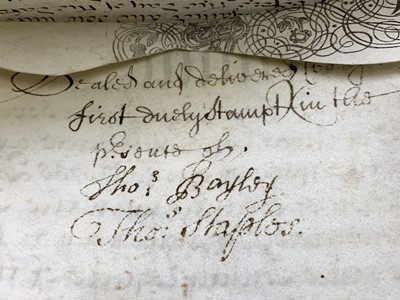 Sealed and delivered
first duely stampt in the
presence of.
Tho:s Bayley
Tho:s Staples.